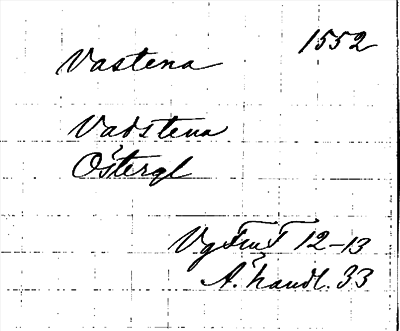 Vastena 1552
Vadstena
Östergl
VgFmT 12-13
Å. handl. 33